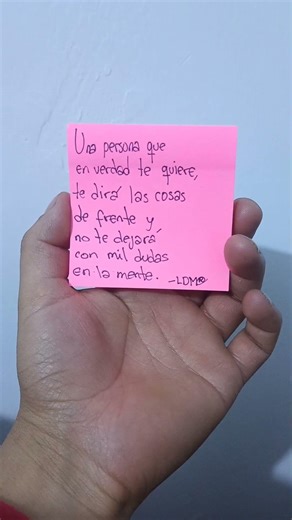 Una persona que
en verdad te quiere,
te dirá las cosas
de frente y
no te dejará
con mil dudas
en la mente. -LDM®